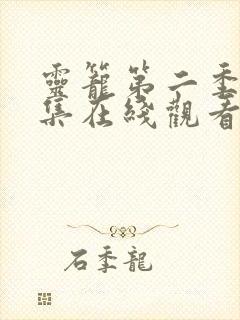 靈籠第二季
集在綫觀看
石季龍